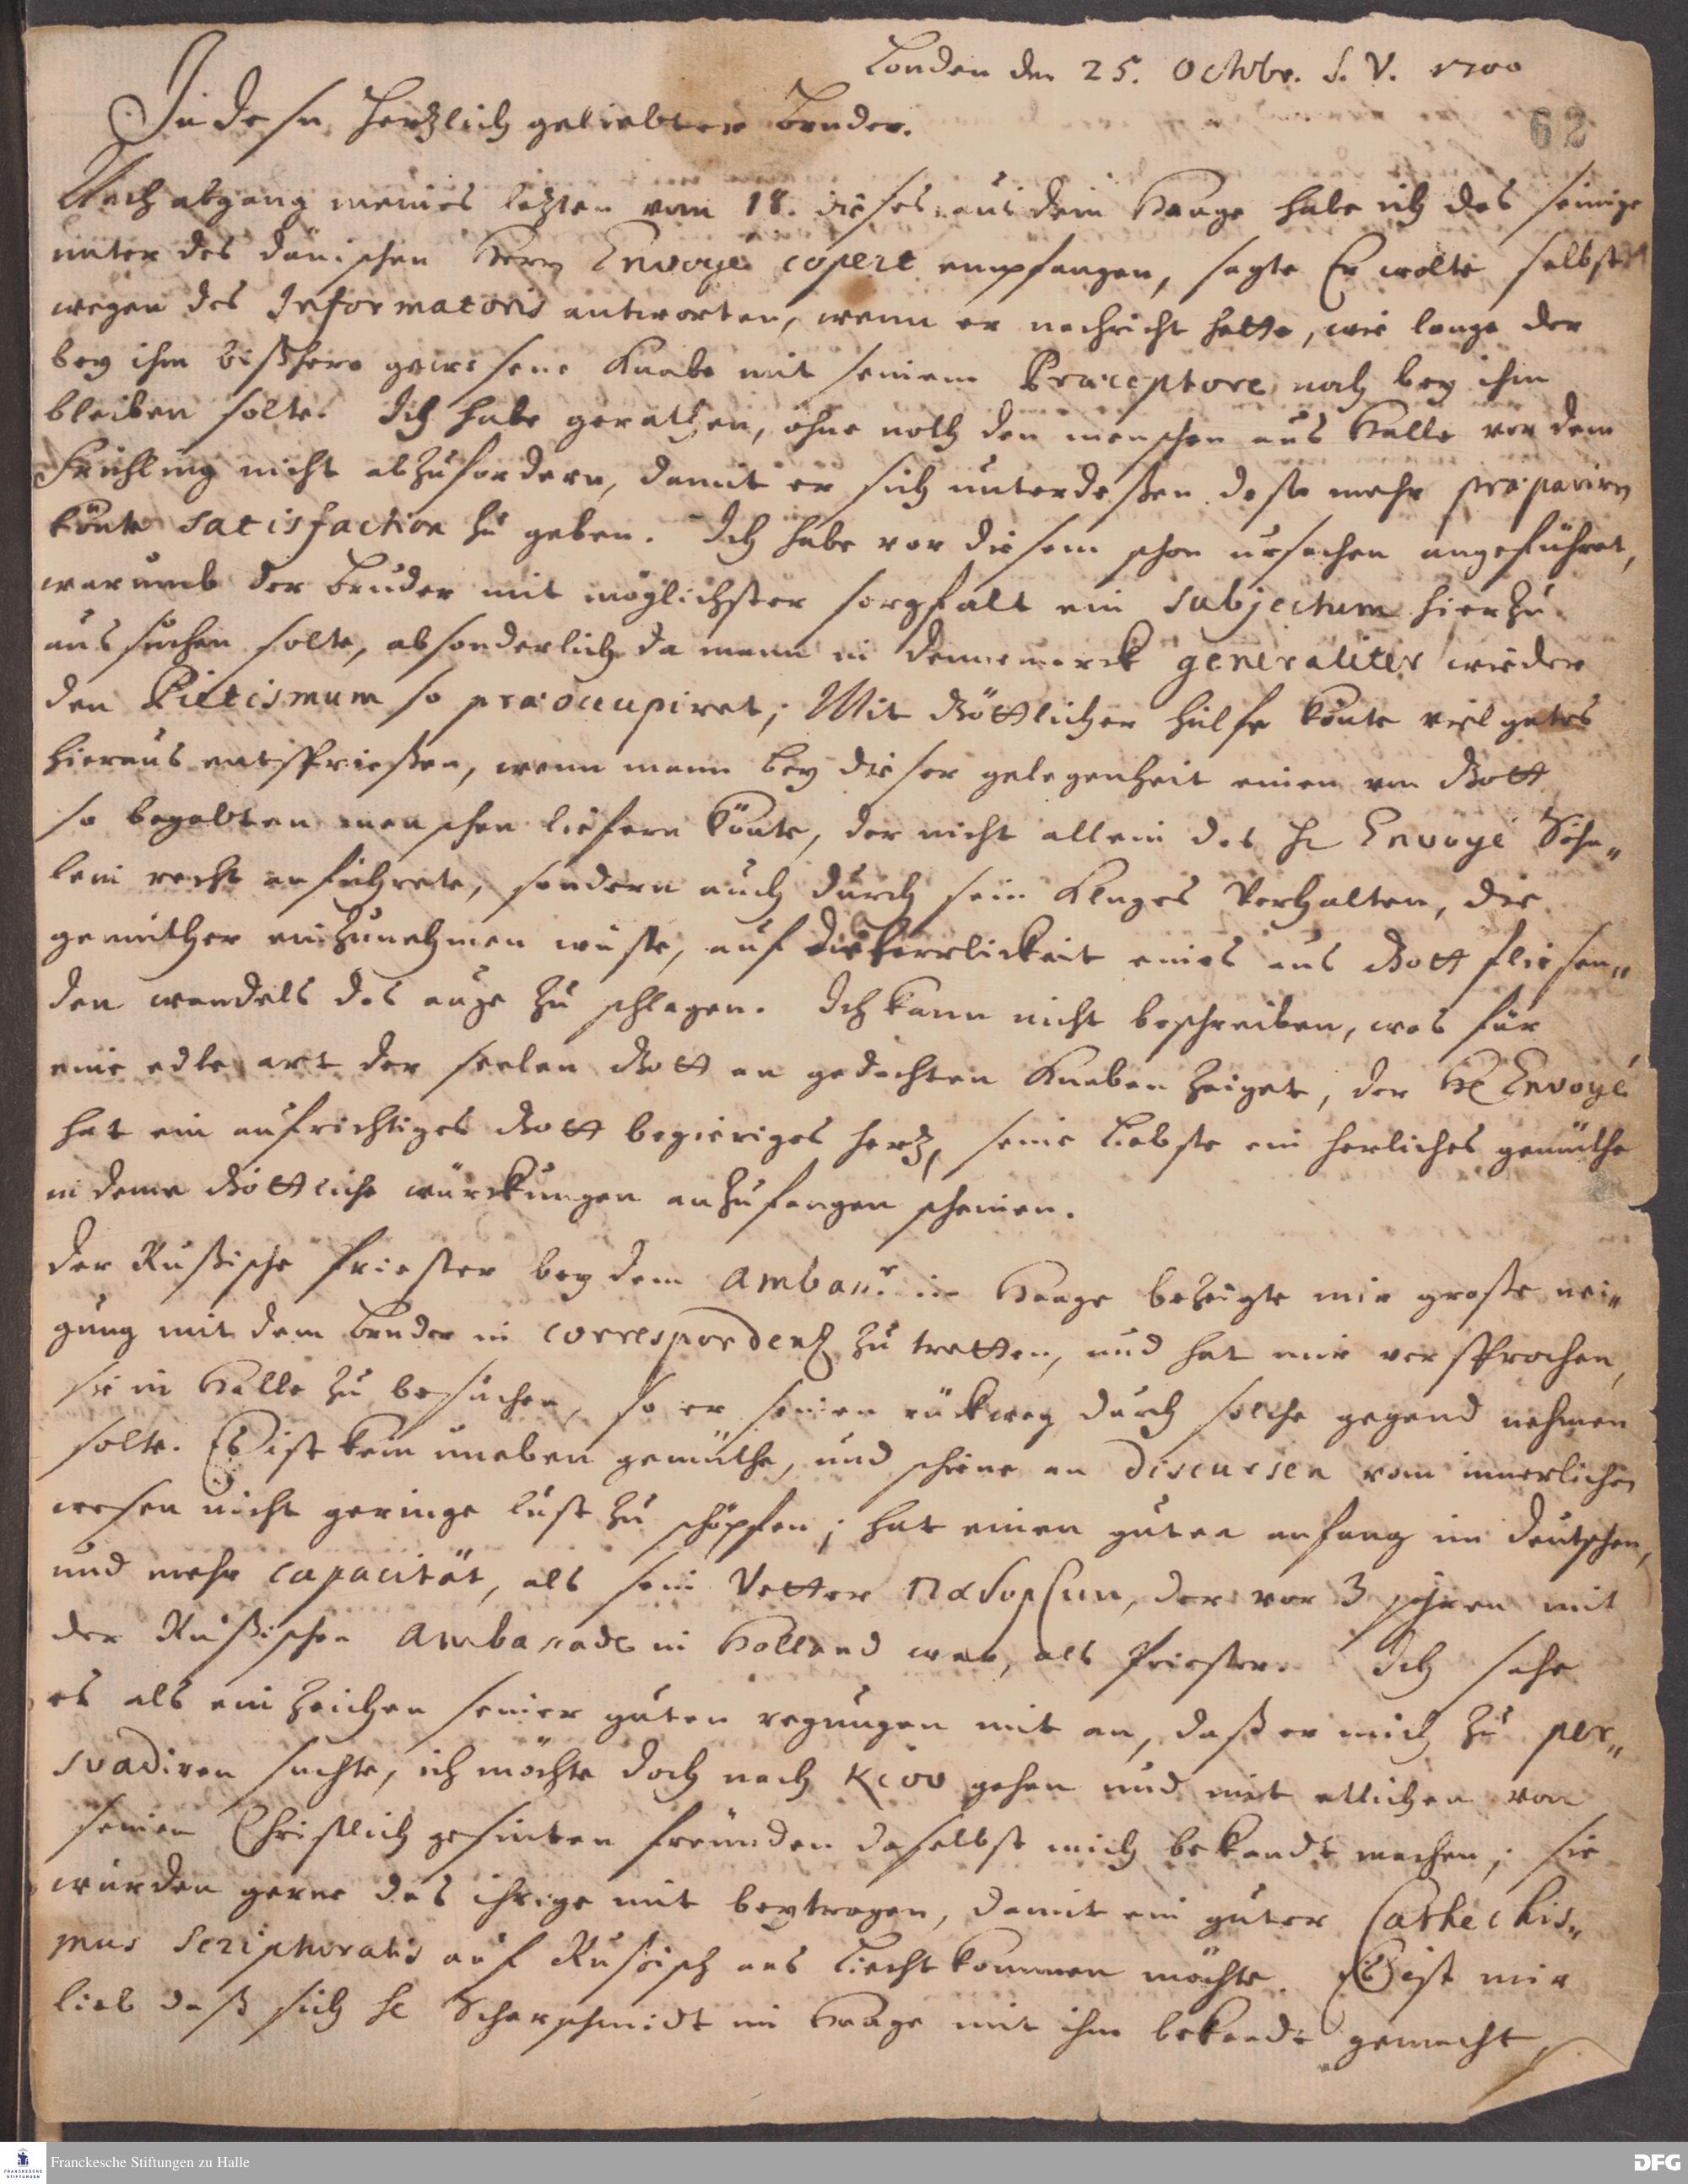 London den 25. Octobr. S. V. 1700
62
In dem Hertzlich geliebter Bruder.
Nach abgang meines letzten vom 18. dieses aus dem Haage habe ich das seinige
unter des dänischen Herrn Envoyé copert empfangen, sagte Er wolte selbst
wegen des Informatoris antworten, wenn er nachricht hette, wie lange der
bey ihm bißhero gewesene Knabe mit seinem Præceptore noch bey ihm
bleiben solte. Ich habe gerathen, ohne noth den menschen aus Halle vor dem
Frühling nicht abzufordern, damit er sich unterdeßen desto mehr præpariren
könte satisfaction zu geben. Ich habe vor diesem schon ursachen angeführet,
warumb der Bruder mit möglichster sorgfalt ein subjectum hierzu
aussuchen solte, absonderlich da mann in Dennemarck generaliter wieder
den Pietismum so præoccupiret; Mit Göttlicher hülfe könte viel gutes
hieraus entsprießen, wenn mann bey dieser gelegenheit einen von Gott
so begabten menschen liefern könte, der nicht allein des H. Envoyé Söhn„
lein recht anführete, sondern auch durch sein kluges Verhalten, die
gemüther einzunehmen wüste, auf die herrlickeit eines aus Gott fliesen„
den wandels das auge zu schlagen. Ich kann nicht beschreiben, was für
eine edle art der seelen Gott an gedachten Knaben zeiget, der H. Envoyé
hat ein aufrichtiges Gott begieriges hertz, seine Liebste ein herliches gemüthe
in deme Göttliche würckungen anzufangen scheinen.
Der Rußische Priester bey dem Ambass.r im Haage bezeigte mir große nei„
gung mit dem Bruder in correspondentz zu tretten, und hat mir versprochen,
sie in Halle zu besuchen, so er seinen rückweg durch solche gegend nehmen
solte. Es ist kein uneben gemüthe, und schiene an discursen vom innerlichen
wesen nicht geringe lust zu schöpfen; hat einen guten anfang im deutschen,
und mehr capacität, als sein Vetter der vor 3 jahren mit
der Rußischen Ambassade in Holland war, als Priester. Ich sahe
es als ein zeichen seiner guten regungen mit an, daß er mich zu per„
svadiren suchte, ich möchte doch nach Kiov gehen und mit etlichen von
seinen Christlich gesinten freünden daselbst mich bekandt machen; sie
würden gerne das ihrige mit beytragen, damit ein guter Cathechis„
mus Scripturalis auf Rußisch ans Liecht kommen möchte. Es ist mir
lieb daß sich H. Scharschmidt im Haage mit ihm bekandt gemacht,
Franckesche Stiftungen zu Halle
FRANCKESCHE STIFTUNGEN
DFG